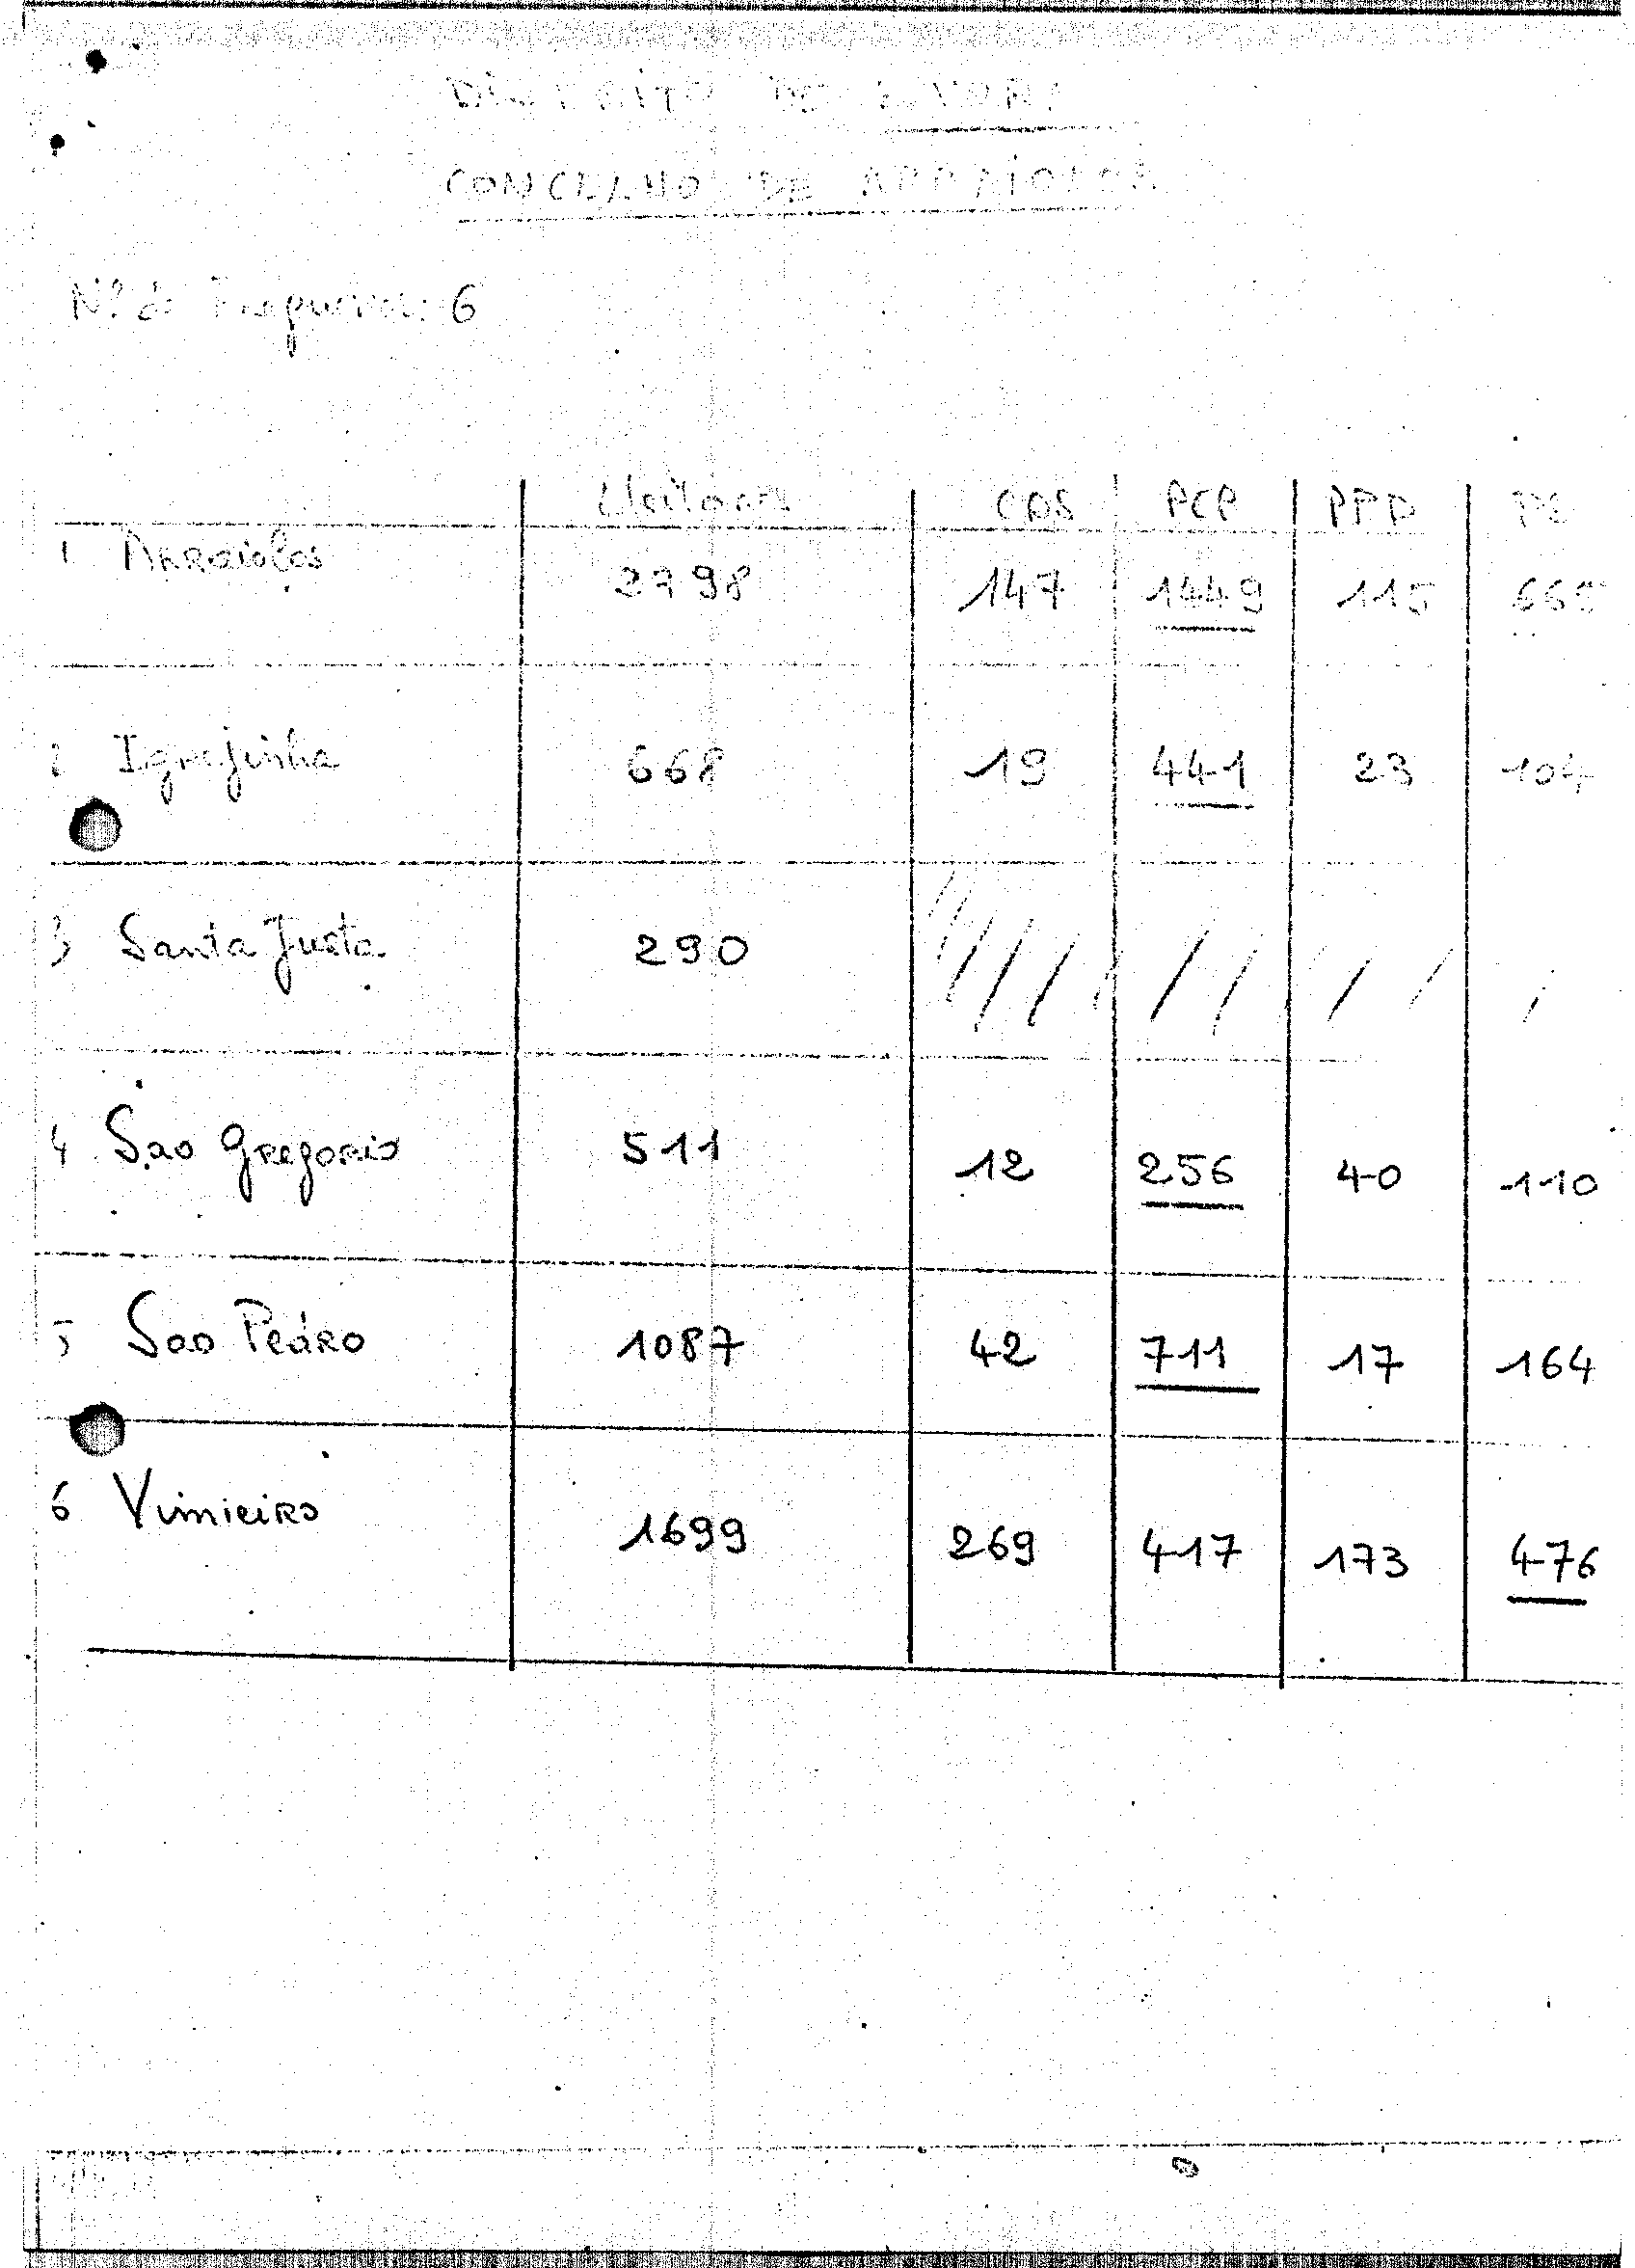 DISTRITO DE EVORA
CONCELHO DE ARRAIOLOS
Nº de Freguesias: 6
Eleitores CDS PCP PPD PS
1 Arraiolos 2798 147 1449 115 665
2 Igrejinha 668 19 441 23 104
3 Santa Justa 290
4 Sao Gregorio 511 12 256 40 110
5 Sao Pedro 1087 42 711 17 164
6 Vimieiro 1699 269 417 173 476